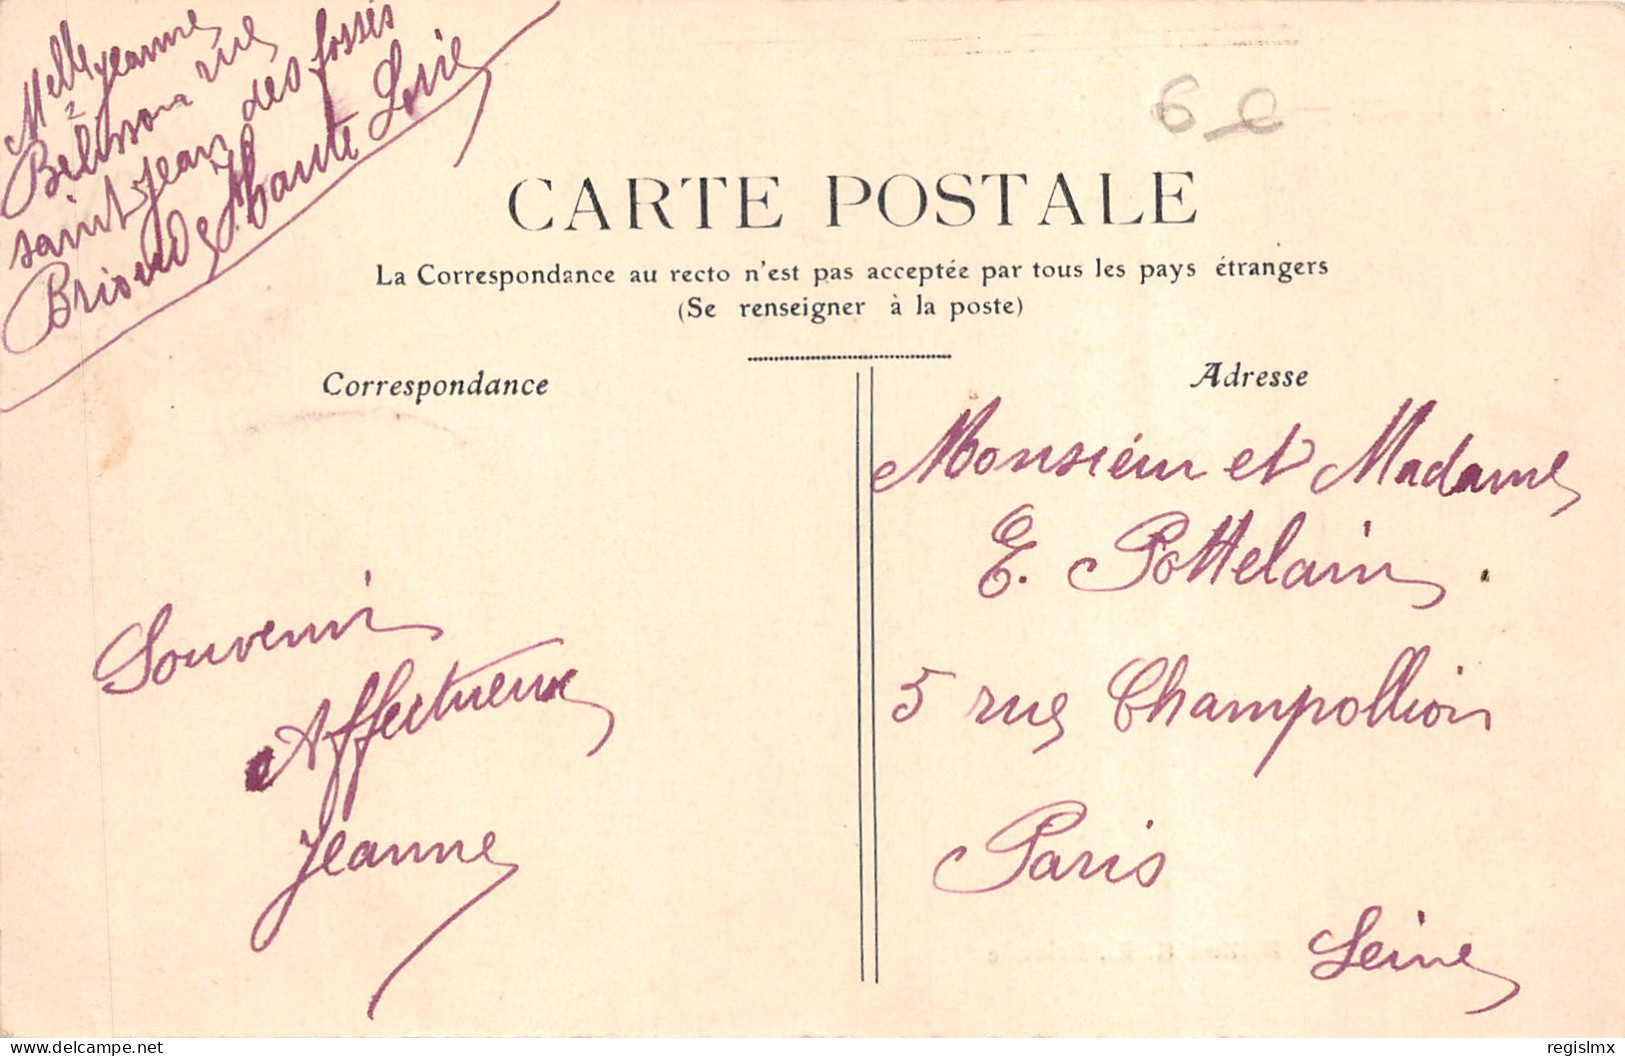 Melle Jeanne
rue
saint Jean des fossés
Brioude Haute Loire
6 e
CARTE POSTALE
La Correspondance au recto n'est pas acceptée par tous les pays étrangers
(Se renseigner à la poste)
Correspondance
Adresse
Monsieur et Madame
E. Pottelain
5 rue Champollion
Paris
Seine
Souvenir
Affectueux
Jeanne
delcampe.net
regislmx